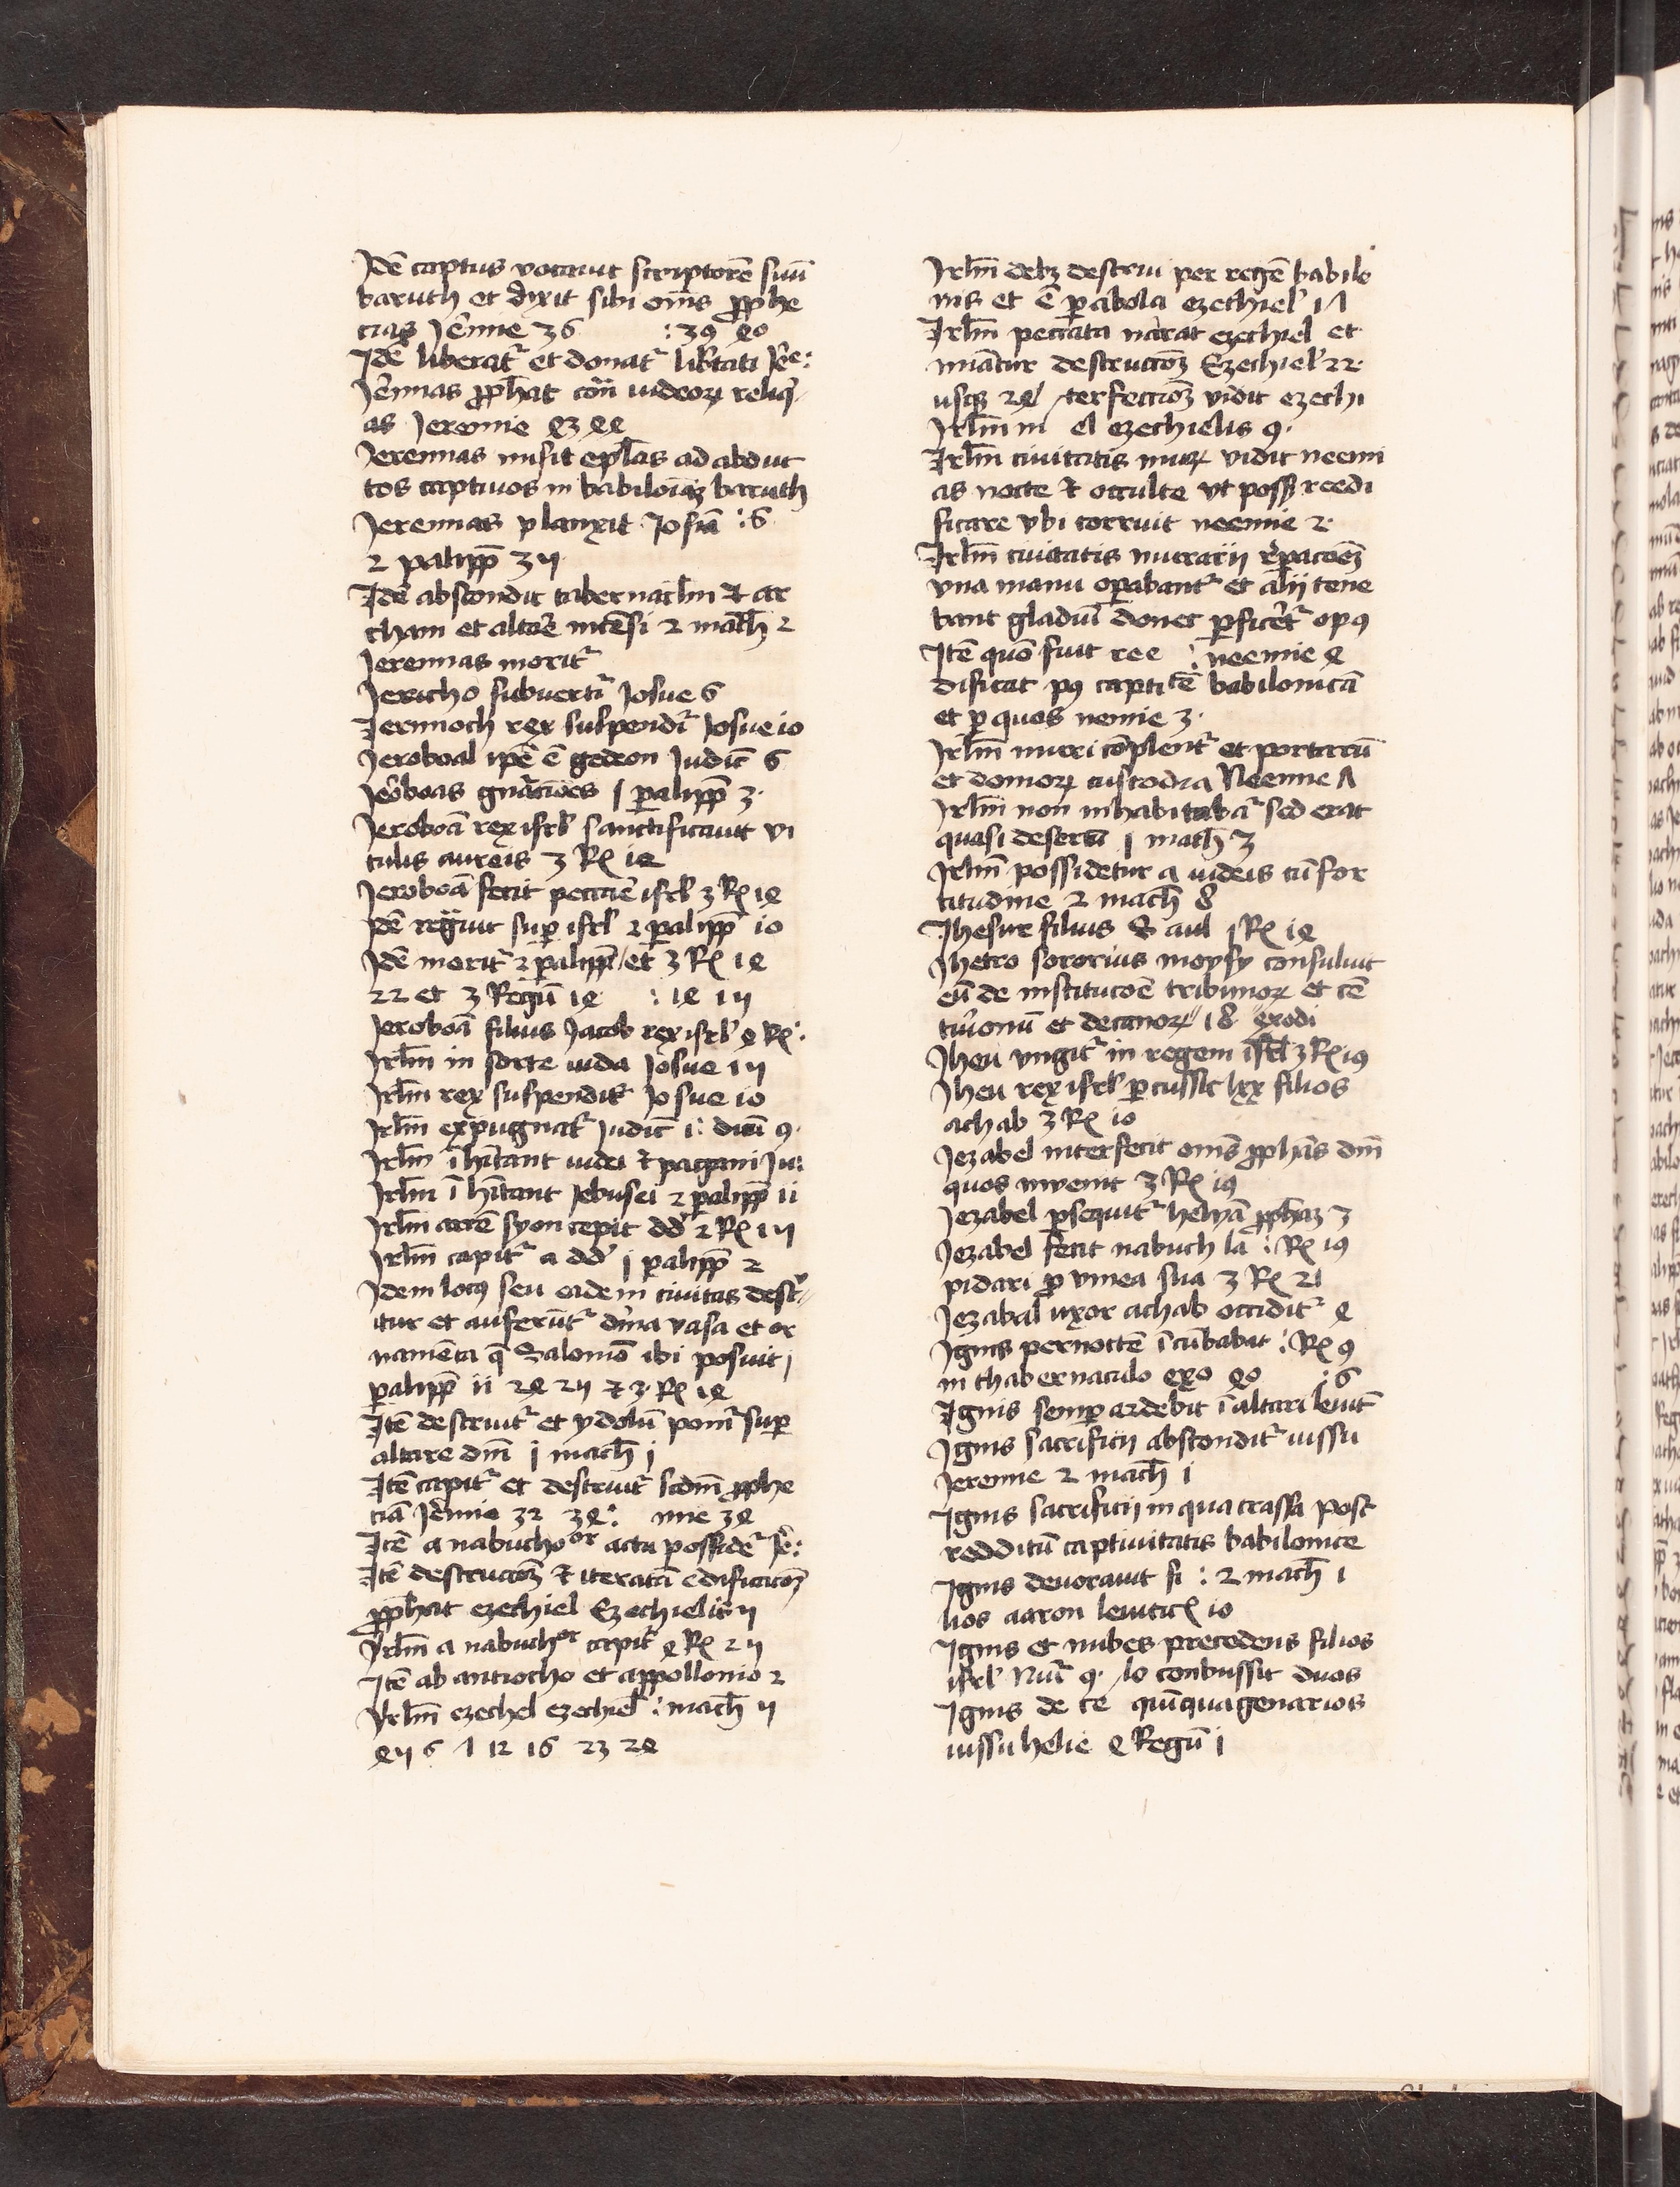 Idē captus vocauit scriptorē suū
baruth et dixit sibi om̄s ꝓphe
tias Jeͥmie 36 : 39 40
Idē liberatͬ et donatͬ libͬtati Jeͥe:
Jeͥmias ꝓph̄at cōn iudeoꝝ reliqͥ
as Jeremie 43 44
Jeremias misit epl̄as ad abduc
tos captiuos in babiloīaꝫ baruth
Jeremias planxit Josiā : 6
2 paliꝑp̄ 35
Idē abscondit tabernacl̄m ⁊ ar
cham et altare incēsi 2 mach̄ 2
Jeremias moritͬ
Jericho subuertͬ Josue 6
Jerimoch rex suspendͬ Josue 10
Jeroboal ip̄e ē gedeon Judic̄ 6
Jeͦboas gn̄atiōes 1 paliꝑp̄ 3.
Jeroboā rex isrl̄ sanctificauit vi
tulis aureis 3 Rꝭ 12
Jeroboā fecit peccare isrl̄ 3 Rꝭ 14
Idē regͣuit suꝑ isrl̄ 2 paliꝑp̄ 10
Idē moritͬ 2 paliꝑp̄ / et 3 Rꝭ 14
22 et 3 Regū 14 : 14 15
Jeroboā filius Jacob rex isrl̄ 4 Rꝭ:
Jrl̄m in sorte iuda Josue 15
Jrl̄m rex suspenditͬ Josue 10
Jrl̄m expugnatͬ Judic̄ 1: dicū 9.
Jrl̄m ī hītant iudei ⁊ pagani Ju:
Jrl̄m ī hītant Jebusei 2 paliꝑp̄ 11
Jrl̄m arcē syon cepit dd̄ 2 Rꝭ 15
Jrl̄m capitͬ a dd̄ 1 paliꝑp̄ 2
Idem locꝰ seu eadem ciuitas destͬ
itur et auferūtͬ dīna vasa et or
namēta q̄ Salomō ibi posuit 1
paliꝑp̄ 11 24 25 ⁊ 3. Rꝭ 14
Itē destruitͬ et ydolū ponitͬ suꝑ
altare dn̄i 1 mach̄ 1
Itē capitͬ et destruitͬ scd̄m ꝓphe
ciā Jeͥmie 32 34: mie 34
Itē a nabuchoᵒʳ actu possidetͬ Jeͥ:
Itē destruccōꝫ ⁊ iteratā edificacōꝫ
ꝓph̄at ezechiel Ezechielis 5
Jrl̄m a nabuchᵒʳ capitͬ 4 Rꝭ 25
Itē ab antiocho et appollonio 2
Jrl̄m ezechel ezechiel̄ : mach̄ 5
45 6 7 12 16 23 24
Jrl̄m debꝫ destrui per regē babilo
nis et ē parabola ezechiel̄ 17
Jrl̄m peccata narrat ezechiel et
minatur destruccōꝫ Ezechiel̄ 22.
usqꝫ 24 / terfectiōꝫ vidit ezechi
Jrl̄m in el ezechielis 9.
Jrl̄m ciuitatis muꝝ vidit neemi
as nocte ⁊ occulte vt possꝫ reedi
ficare vbi corruit neemie 2.
Jrl̄m ciuitatis murarii reͣpacōeꝫ
vna manu oꝑabantͬ et alii tene
bant gladiū donec ꝑficetͬ opꝰ
Itē quō fuit ree : neemie 4
dificat pꝰ captiͭē babilonicā
et ꝑ quos nemie 3.
Jrl̄m muri cōplentͬ et portarū
et domoꝝ custodia Neemie 7
Jrl̄m non inhabitabatͬ sed erat
quasi desertū 1 mach̄ 3
Jrl̄m possidetur a iudeis cū for
titudine 2 mach̄ 8
Jhesur filius Saul 1 Rꝭ 14
Jhetro sororius moysy consuluit
eū de institucōe tribunoꝝ et cē
tuͥonū et decanoꝝ / 18 exodi
Jheu vngitͬ in regem isrl̄ 3 Rꝭ 19
Jheu rex isrl̄ ꝑcussit lxx filios
achab 3 Rꝭ 10
Jezabel interfecit om̄s ꝓphās dn̄i
quos invenit 3 Rꝭ 19
Jezabel ꝑsequitͬ helyā ꝓph̄aꝫ 3
Jezabel fecit nabuch la : Rꝭ 19
pidari ꝓ vinea sua 3 Rꝭ 21
Jezabal uxor achab occiditͬ 4
Ignis pernoctē īcūbabat : Rꝭ 9
in thabernaculo exo 40 : 6
Ignis semꝑ ardebit ī altari leuit̄
Ignis sacrificii absconditͬ iussu
Jeremie 2 mach̄ 1
Ignis sacrificii in qua crassa post
redditū captiuitatis babilonice
Ignis deuorauit fi : 2 mach̄ 1
lios aaron leuiticꝭ 10
Ignis et nubes precedens filios
isrl̄ Nūͬ 9. / lo conbussit duos
Ignis de ce quīquagenarios
iussu helie 4 Regū 1